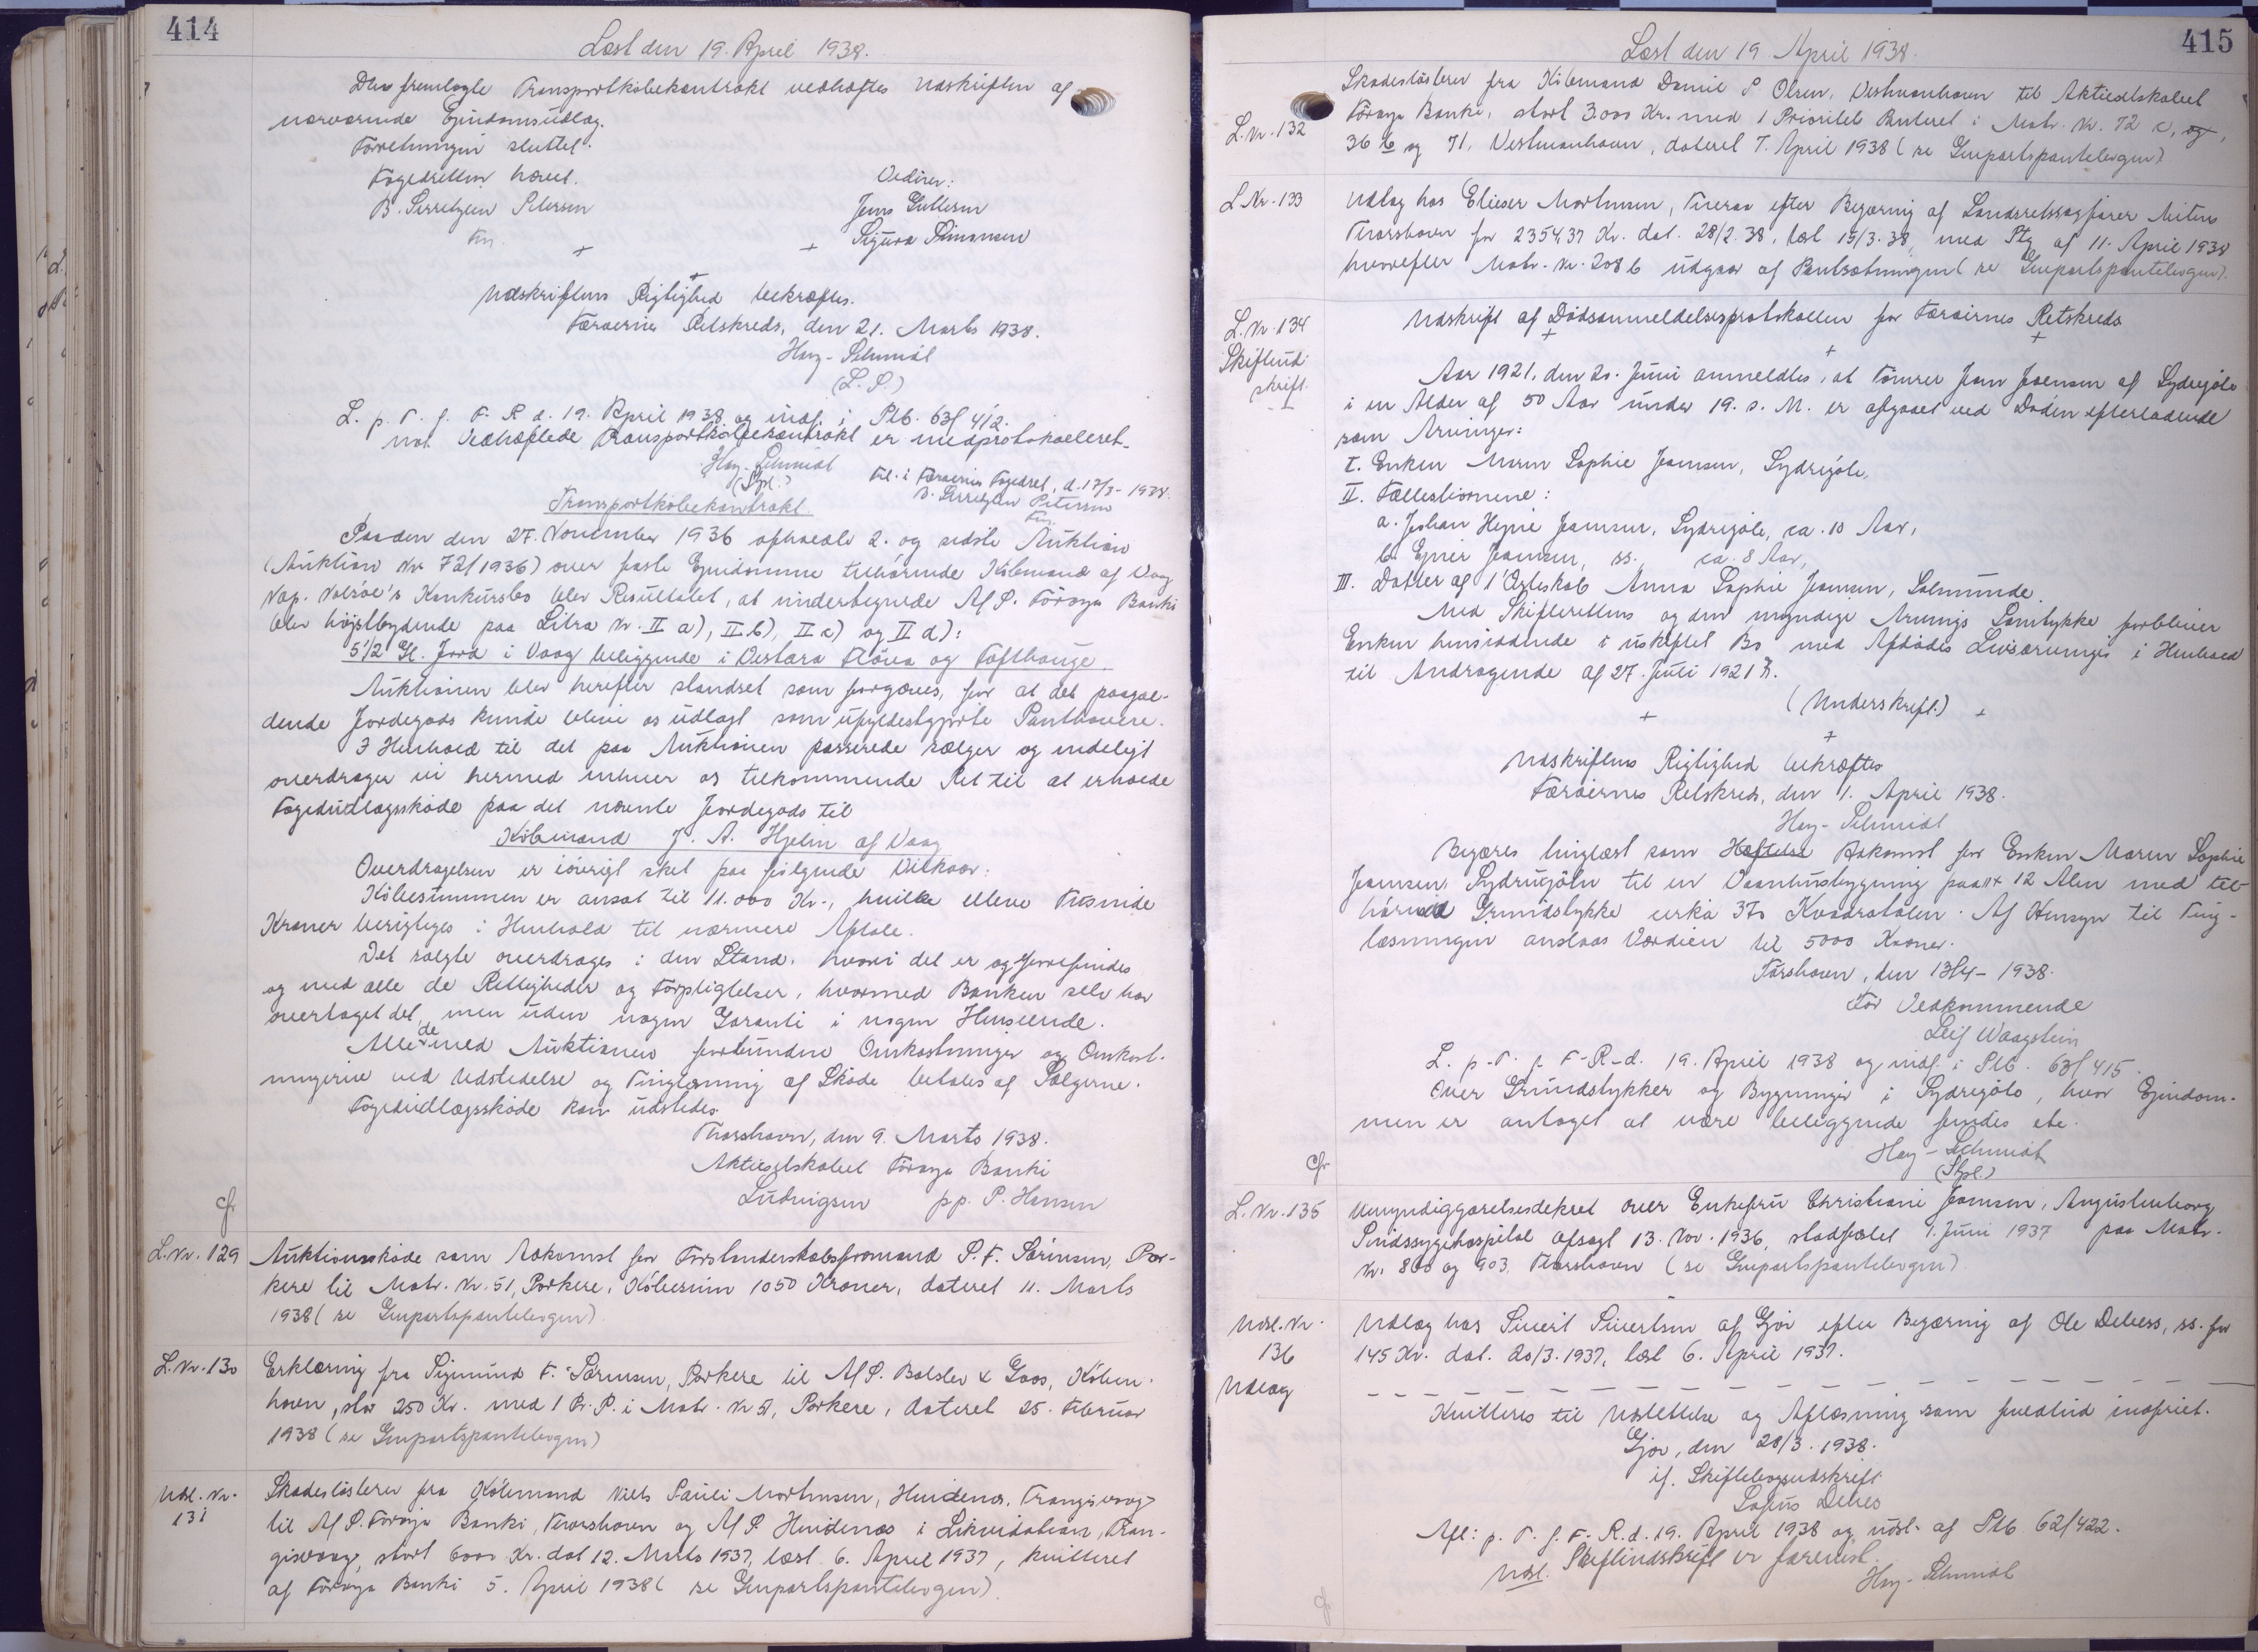 414
Læst den 19. April 1938.
Den fremlagte Transportkøbekontrakt vedhæftes Udskriften af
nærværende Ejendomsudlæg.
Forretningen sluttet.
Fogedretten hævet.
Vidner:
B. Sivertsen Petersen
Jens Guttesen
Fm.
Sigurd Simonsen
Udskriftens Rigtighed bekræftes.
Færøernes Retskreds, den 21. Marts 1938.
Hay-Schmidt
(L. S.)
L. p. T. f. F. R. d. 19. April 1938 og indf. i Ptb. 63/412.
not. Vedhæftede Transportkøbekontrakt er medprotokolleret.
Hay-Schmidt
(Spl.)
Fil. i Færøernes Fogedret, d. 17/3-1938.
B. Sivertsen Petersen
Fm.
Transportkøbekontrakt
Paa den den 27. November 1936 afholdte 2. og sidste Auktion
(Auktion Nr 72/1936) over faste Ejendomme tilhørende Købmand af Vaag
Nap. Nolsøe's Konkursbo blev Resultatet, at undertegnede A/S. Føroya Banki
blev højstbydende paa Litra Nr. II a), II b), II c) og II d):
5 1/2 Gl. Jord i Vaag beliggende i Vestara Flöua og Tofthauge
Auktionen blev herefter standset som forgæves, for at det paagæl-
dende Jordegods kunde blive os udlagt som ufyldestgjorte Panthavere.
I Henhold til det paa Auktionen passerede sælger og endeligt
overdrager vi hermed enhver os tilkommende Ret til at erholde
Fogedudlægsskøde paa det nævnte Jordegods til
Købmand J. A. Hjelm af Vaag
Overdragelsen er iøvrigt sket paa følgende Vilkaar:
Købesummen er ansat til 11.000 Kr., hvilke elleve Tusinde
Kroner berigtiges i Henhold til nærmere Aftale.
Det solgte overdrages i den Stand, hvori det er og forefindes
og med alle de Rettigheder og Forpligtelser, hvormed Banken selv har
overtaget det, men uden nogen Garanti i nogen Henseende.
Alle de med Auktionen forbundne Omkostninger og Omkost-
ningerne ved Udstedelse og Tinglæsning af Skøde betales af Sælgerne.
Fogedudlægsskøde kan udstedes.
Thorshavn, den 9. Marts 1938.
Aktieselskabet Føroya Banki
Ludvigsen pp. P. Hansen
cfr
L. Nr. 129
Auktionsskøde som Adkomst for Forstanderskabsformand P. F. Sørensen, Por-
kere til Matr. Nr. 51, Porkere, Købesum 1050 Kroner, dateret 11. Marts
1938 (se Genpartspantebogen)
L. Nr. 130
Erklæring fra Sigmund F. Sørensen, Porkere til A/S. Balslev & Goos, Køben-
havn, stor 250 Kr. med 1 Pr. P. i Matr. Nr 51, Porkere, dateret 25. Februar
1938 (se Genpartspantebogen)
Udsl. Nr.
131
Skadesløsbrev fra Købmand Niels Pauli Mortensen, Hvidenæs, Trangisvaag
til A/S. Føroya Banki, Thorshavn og A/S. Hvidenæs i Likvidation, Tran-
gisvaag, stort 6000 Kr. dat 12. Marts 1937, læst 6. April 1937, kvitteret
af Føroya Banki 5. April 1938 (se Genpartspantebogen)
415
Læst den 19 April 1938.
L. Nr. 132
Skadesløsbrev fra Købmand Daniel P Olsen, Vestmanhavn til Aktieselskabet
Føroya Banki, stort 3.000 Kr. med 1 Prioritets Panteret i Matr. Nr. 72 c, og,
36 b og 71, Vestmanhavn, dateret 7. April 1938 (se Genpartspantebogen)
L Nr. 133
Udlæg hos Elieser Mortensen, Tveraa efter Begæring af Landsretssagfører Mitens
Thorshavn for 2354,37 Kr. dat. 28/2.38, læst 15/3.38, med Ptg af 11. April 1938
hvorefter Matr. Nr. 208 b udgaar af Pantsætningen (se Genpartspantebogen).
L. Nr. 134
Skifteud-
skrift.
Udskrift af Dødsanmeldelsesprotokollen for Færøernes Retskreds
Aar 1921, den 20. Juni anmeldtes, at Tømrer Joen Joensen af Sydregøte
i en Alder af 50 Aar under 19. s. M. er afgaaet ved Døden efterladende
som Arvinger:
I. Enken Maren Sophie Joensen, Sydregøte,
II. Fællesbørnene:
a. Johan Hejne Joensen, Sydregøte, ca. 10 Aar,
b. Ejner Joensen, ss. ca. 8 Aar,
III. Datter af 1' Ægteskab Anna Sophie Joensen, Solmunde.
Med Skifterettens og den myndige Arvings Samtykke forbliver
Enken hensiddende i uskiftet Bo med Afdødes Livsarvinger i Henhold
til Andragende af 27. Juli 1921.
(Underskrift.)
Udskriftens Rigtighed bekræftes
Færøernes Retskreds, den 1. April 1938.
Hay-Schmidt
Begæres tinglæst som Hæftelse Adkomst for Enken Maren Sophie
Joensen, Sydregøte til en Vaaningsbygning paa 14 x 12 Alen med til-
hørende Grundstykke cirka 370 Kvadratalen. Af Hensyn til Ting-
læsningen anslaas Værdien til 5000 Kroner.
Tórshavn, den 13/4-1938.
For Vedkommende
Leif Waagstein
L. p. T. f. F-R-d. 19. April 1938 og indf. i Ptb. 63/415.
Over Grundstykker og Bygninger i Sydregøte, hvor Ejendom-
men er antaget at være beliggende findes ikke
Hay-Schmidt
(Spl.)
cfr
L. Nr. 135
Umyndiggørelsesdekret over Enkefru Christiane Joensen, Augustenborg
Sindssygehospital afsagt 13. Nov. 1936, stadfæstet 1. Juni 1937 paa Matr.
Nr. 800 og 903, Thorshavn (se Genpartspantebogen)
Udsl. Nr.
136
Udlæg
Udlæg hos Sivert Sivertsen af Gjov efter Begæring af Ole Debess, ss. for
145 Kr. dat. 20/3.1937, læst 6. April 1937.
Kvitteres til Udslettelse og Aflæsning som fuldtud indfriet.
Gjov, den 28/3.1938.
if. Skiftebogsudskrift
Sofus Debes
Afl: p. T. f. F. R. d. 19. April 1938 og udsl. af Ptb. 62/422.
Udsl. Skifteudskrift er forevist.
Hay-Schmidt
cfr